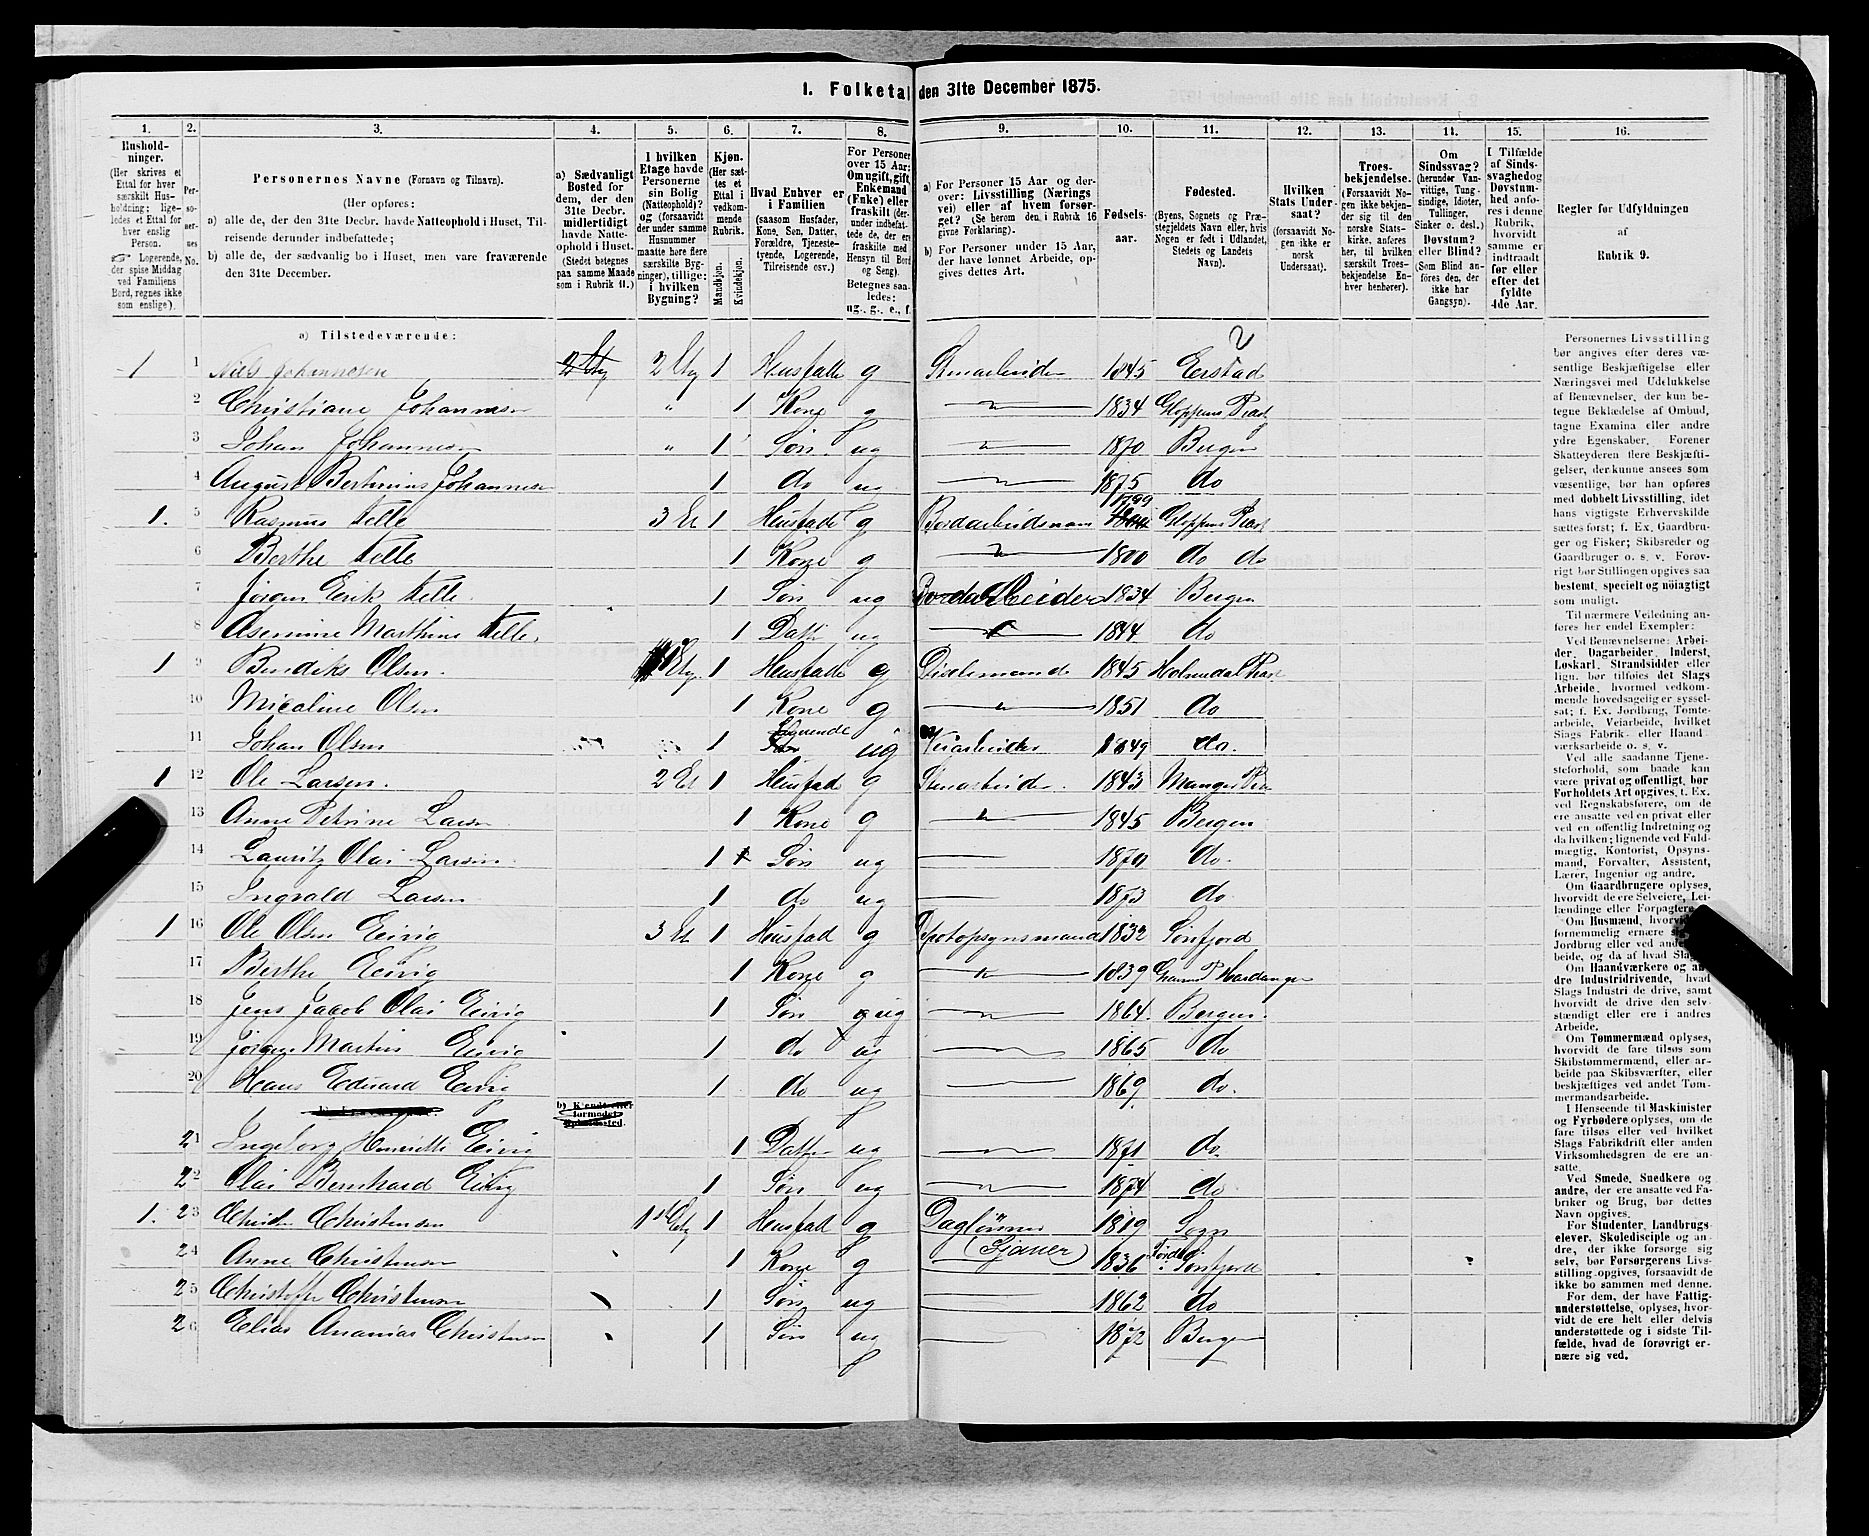 1. Folketal den 31te December 1875.
1. 2. 3. 4. 5. 6. 7. 8. 9. 10. 11. 12. 13. 14. 15. 16.
Husholdninger. (Her skrives et Ettal for hver særskilt Husholdning; ligeledes et Ettal for hver enslig Person. Logerende, der spise Middag ved Familiens Bord, regnes ikke som enslige).
Personernes No.
Personernes Navne (Fornavn og Tilnavn).
(Her opføres:
a) alle de, der den 31te Decbr. havde Natteophold i Huset, Tilreisende derunder indbefattede;
b) alle de, der sædvanlig bo i Huset, men vare fraværende den 31te December.
a) Sædvanligt Bosted for dem, der den 31te Decbr. midlertidigt havde Natteophold i Huset. (Stedet betegnes paa samme Maade som i Rubrik 11.)
I hvilken Etage havde Personerne sin Bolig (Natteophold)? og (forsaavidt der under samme Husnummer maatte høre flere særskilte Bygninger), tillige: i hvilken Bygning?
Kjøn. (Her sættes et Ettal i vedkommende Rubrik. Mandkjøn. Kvindekjøn.
Hvad Enhver er i Familien (saasom Husfader, Kone, Søn, Datter, Forældre, Tjenestetyende, Logerende, Tilreisende osv.)
For Personer over 15 Aar: Om ugift, gift, Enkemand (Enke) eller fraskilt (derunder indbefattede de, der ere fraskilte med Hensyn til Bord og Seng). Betegnes saaledes: ug., g., e., f.
a) For Personer 15 Aar og derover: Livsstilling (Næringsvei) eller af hvem forsørget? (Se herom den i Rubrik 16 givne Forklaring).
b) For Personer under 15 Aar, der have lønnet Arbeide, opgives dettes Art.
Fødselsaar.
Fødested. (Byens, Sognets og Præstegjeldets Navn eller, hvis Nogen er født i Udlandet, Stedets og Landets Navn).
Hvilken Stats Undersaat? (forsaavidt Nogen ikke er norsk Undersaat).
Troesbekjendelse. (Forsaavidt Nogen ikke bekjender sig til den norske Statskirke, anføres her, til hvilken særskilt Troesbekjendelse Enhver henhører).
Om Sindssvag? (herunder Vanvittige, Tungsindige, Idioter, Tullinger, Sinker o. desl.) Døvstum? eller Blind? (Som Blind anføres den, der ikke har Gangsyn).
I Tilfælde af Sindssvaghed og Døvstumhed anføres i denne Rubrik, hvorvidt samme er indtraadt før eller efter det fyldte 4de Aar.
Regler for Udfyldningen af Rubrik 9.
a) Tilstedeværende:
1 1 Niels Johannesen 2 Etg 2 Etg 1 Husfader g Stenarbeider 1845
2 Christiane Johannesen " 1 Kone g 1834 Gloppens Præst
3 Johan Johannesen " 1 Søn ug 1870 Bergen
4 August Bertinius Johannesen 1 do ug 1875 do
1. 5 Rasmus Felle 3 Et 1 Husfader g 1799 Gloppens Præst
6 Berthe Felle 1 Kone g 1800 do do
7 Jørgen Erik Felle 1 Søn ug Bordarbeider 1834 Bergen
8 Marthine Felle 1 Datter ug 1844 do
1 9 Bendiks Olsen Etg. 1 Husfader g 1845
10 Micaline Olsen 1 Kone g 1851 do
11 Johan Olsen 1 Logerende ug Veiarbeider 1849 do.
1 12 Ole Larsen. 2 Et 1 Husfad g Stenarbeider. 1843 Manger Præ
13 Anne Petrine Larsen 1 Kone g 1845 Bergen
14 Lauritz Olai Larsen 1 Søn ug 1870 do.
15 Ingvald Larsen 1 do ug 1873 do
1 16 Ole Olsen Eivig 3 Et 1 Husfad g Depotopsynsmand 1832 Sønfjord
17 Berthe Eivig 1 Kone g 1839 Hardanger
18 Jens Jacob Olai Eivig 1 Søn ug 1864. Bergen.
19 Jørgen Martin Eivig 1 do ug 1865 do
20 Hans Edward Eivig 1 do ug 1869 do.
b) Kjendt eller formodet Opholdssted.
21 Ingeborg Henriette Eivig 1 Datter ug 1871 do.
22 Olai Bernhard Eivig 1 Søn ug 1874 do
1. 23 Christen Christensen 1ste Etg 1 Husfad g Dagløнner 1819 Sogn
24 Anne Christensen 1 Kone g 1836 Førde Sønfjord
25 Christoffer Christensen 1 Søn ug 1862 do
26 Elias Ananias Christensen 1 Søn ug 1872 Bergen
Personernes Livsstilling
bør angives efter deres væ-
sentlige Beskjæftigelse eller
Næringsvei med Udelukkelse
af Benævnelser, der kun be-
tegne Beklædelse af Ombud,
tagne Examina eller andre
ydre Egenskaber. Forener
Skatteyderen flere Beskjæfti-
gelser, der kunne ansees som
væsentlige, bør han opføres
med dobbelt Livsstilling, idet
hans vigtigste Erhvervskilde
sættes først; f. Ex. Gaardbru-
ger og Fisker; Skibsreder og
Gaardbruger o. s. v. Forøv-
rigt bør Stillingen opgives saa
bestemt, specielt og nøiagtigt
som muligt.
Til nærmere Veiledning an-
føres her endel Exempler:
Ved Benævnelserne: Arbei-
der, Dagarbeider, Inderst,
Løskarl, Strandsidder eller
lign. bør tilføies det Slags
Arbeide, hvormed vedkom-
mende hovedsagelig er syssel-
sat; f. Ex. Jordbrug, Tomte-
arbeide, Veiarbeide, hvilket
Slags Fabrik- eller Haand-
værksarbeide o. s. v.
Ved alle saadanne Tjene-
steforhold, som baade kan
være privat og offentlig, bør
Forholdets Art opgives, t. Ex.
ved Regnskabsførere, om de
ere ansatte ved en privat eller
ved en offentlig Indretning og
da hvilken; lignende ved Fuld-
mægtig, Kontorist, Opsyns-
mand, Forvalter, Assistent,
Lærer, Ingeniør og andre.
Om Gaardbrugere oplyses,
hvorvidt de ere Selveiere, Lei-
lændinge eller Forpagtere
Om Husmænd,
fornemmelig ernære
Jordbrug eller ved
beide, og da af hvad Slags
Om Haandværkere og an-
dre Industridrivende, hvad
Slags Industri de drive, samt
hvorvidt de drive den selv-
stændigt eller ere i andres
Arbeide.
Om Tømmermænd oplyses,
hvorvidt de fare tilsøs som
Skibstømmermænd, eller ar-
beide paa Skibsværfter, eller
beskjæftiges ved andet Tøm-
mermandsarbeide.
I Henseende til Maskinister
og Fyrbødere oplyses, om de
fare tilsøs eller ved hvilket
Slags Fabrikdrift eller anden
Virksomhedsgren de ere an-
satte.
Ved Smede, Snedkere og
andre, der ere ansatte ved Fa-
briker og Brug, bør dettes
Navn opgives.
For Studenter, Landbrugs-
elever, Skoledisciple og an-
dre, der ikke forsørge sig
selv, bør Forsørgerens Livs-
stilling opgives, forsaavidt de
ikke bo sammen med denne.
For dem, der have Fattig-
understøttelse, oplyses, hvor-
vidt de ere helt eller delvis
understøttede og i sidste Til-
fælde, hvad de forøvrigt er-
nære sig ved.